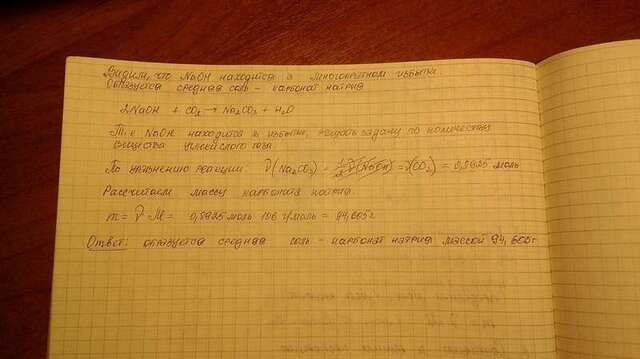 Видим, что NaOH находится в многократном избытке.
Образуется средняя соль - карбонат натрия
2NaOH + CO₂ → Na₂CO₃ + H₂O
Т.к NaOH находится в избытке, решать задачу по количеству
вещества углекислого газа
По уравнению реакции ν(Na₂CO₃) = ν(CO₂) = 0,8925 моль
Рассчитаем массу карбоната натрия.
m = ν · M = 0,8925 моль · 106 г/моль = 94,605 г
Ответ: образуется средняя соль - карбонат натрия массой 94,605 г